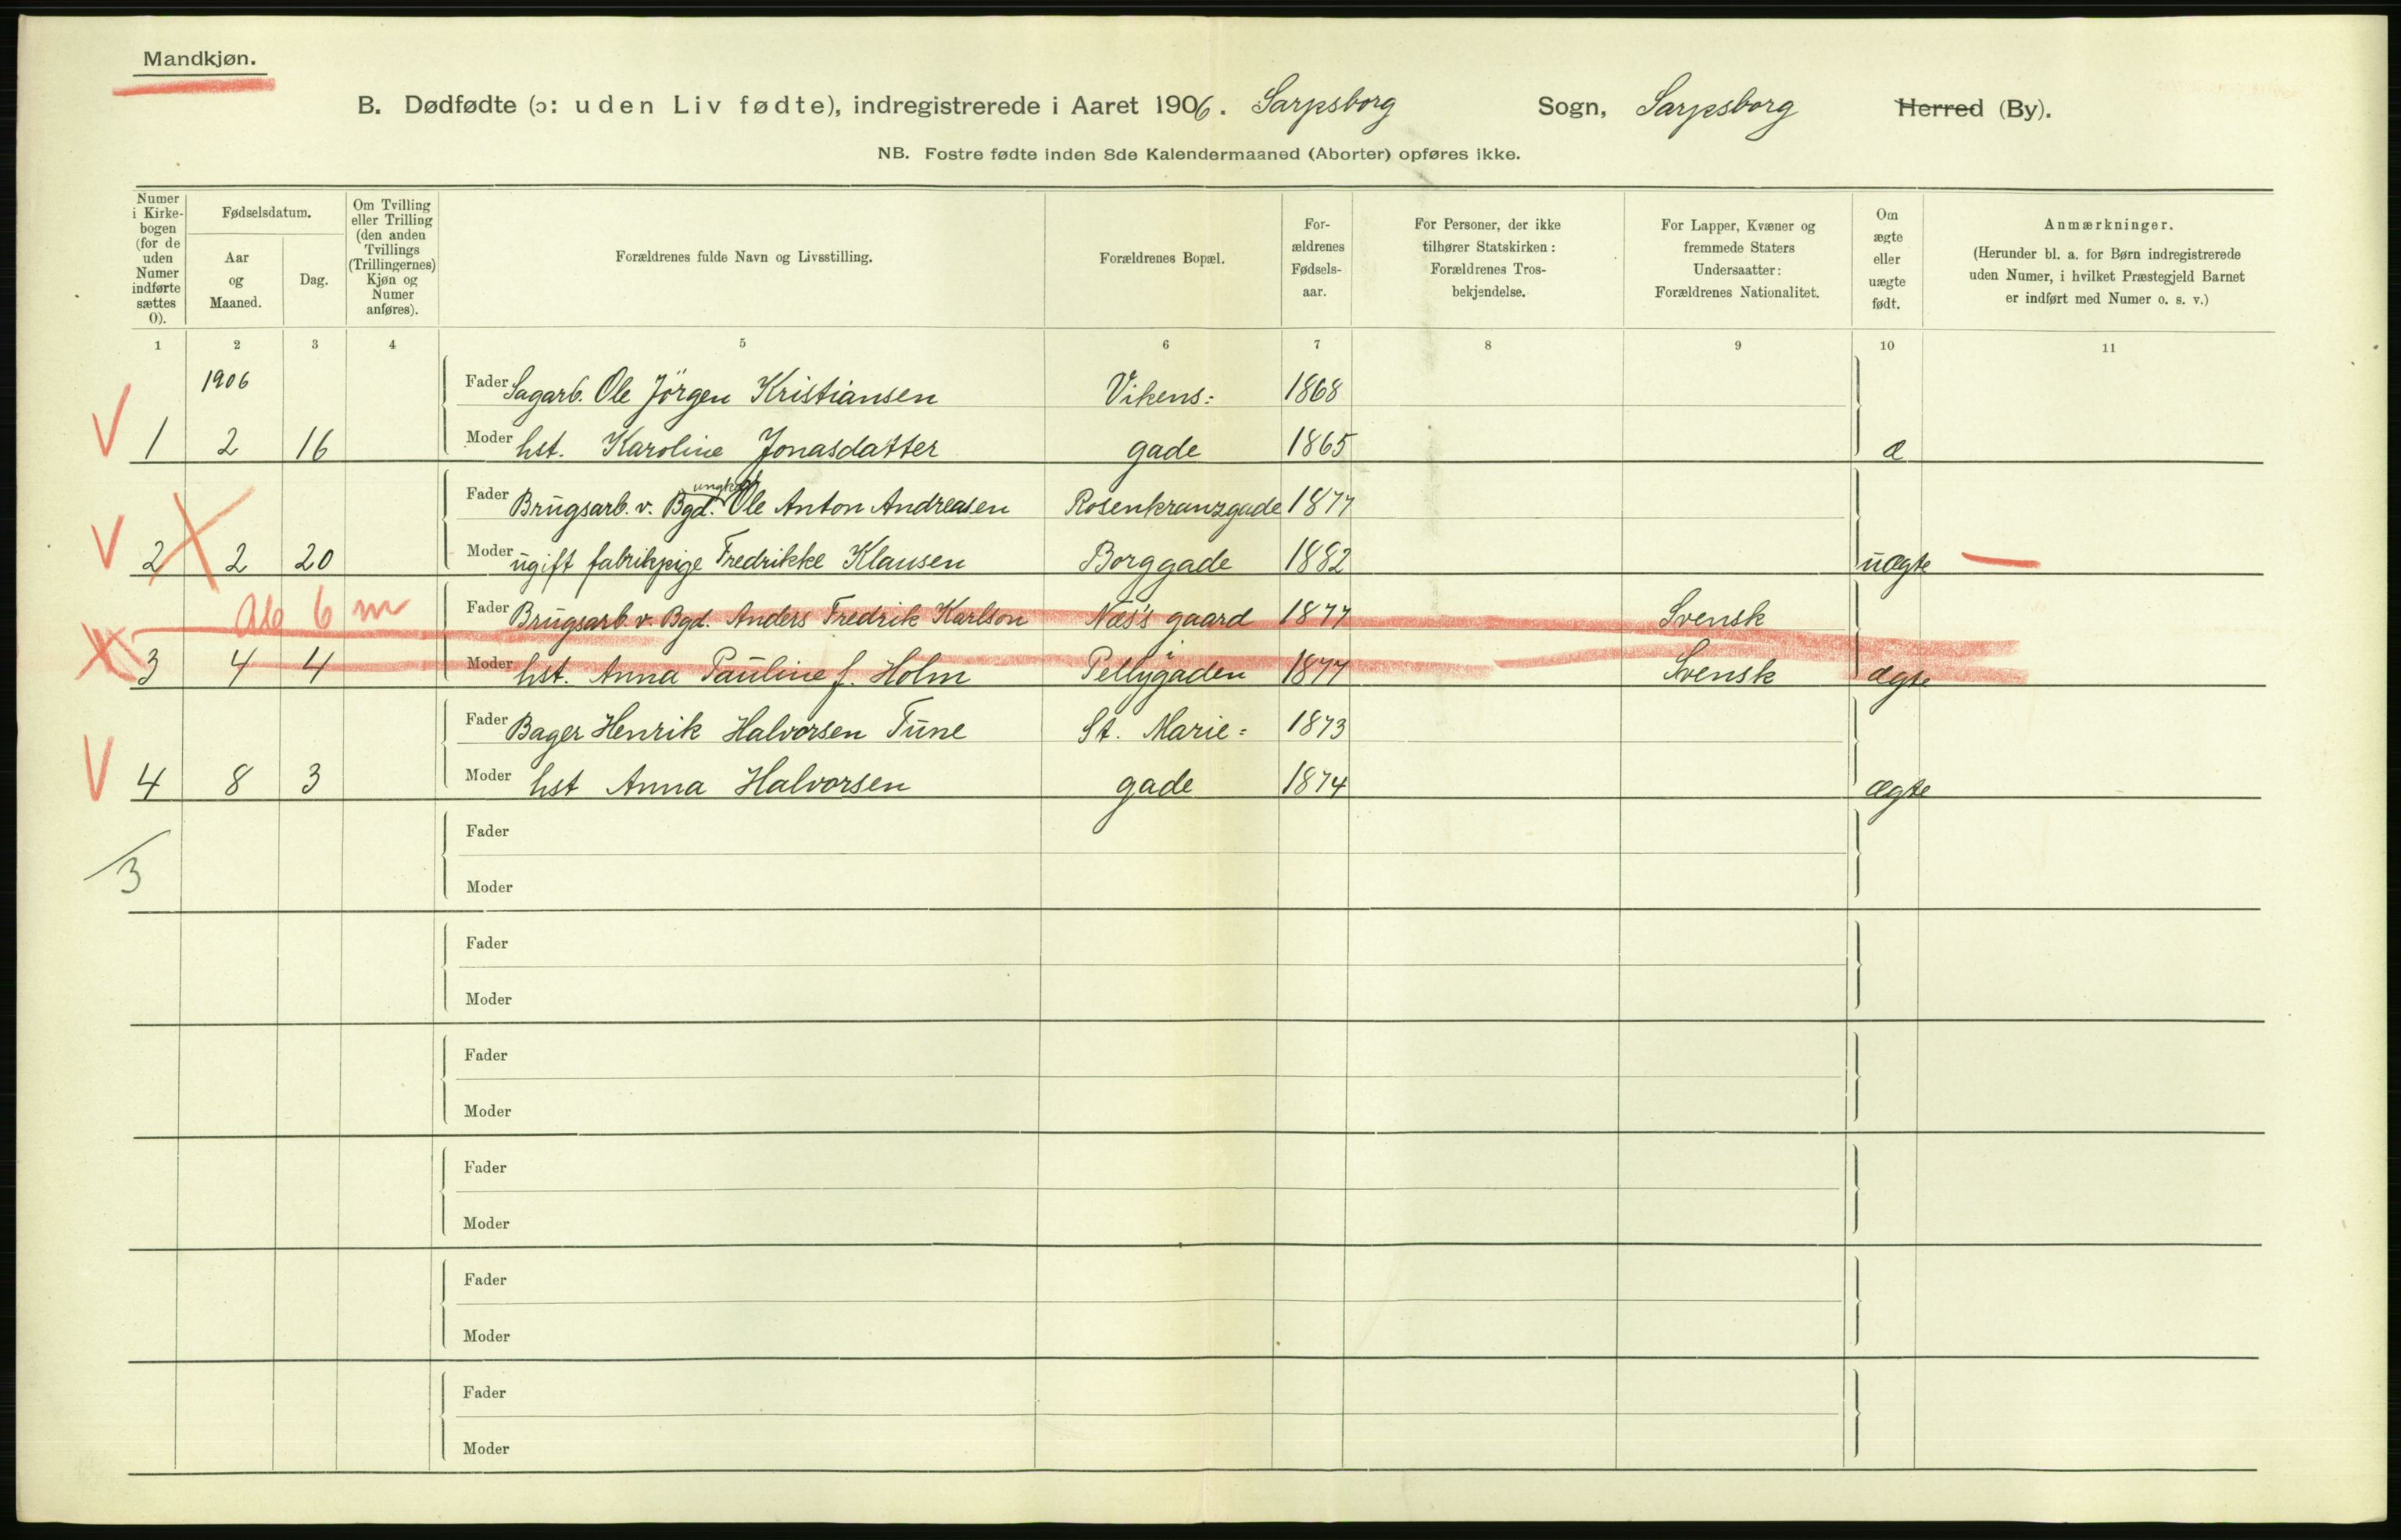 Mandkjøn.
B. Dødfødte (ɔ: uden Liv fødte), indregistrerede i Aaret 1906. Sarpsborg Sogn, Sarpsborg Herred (By).
NB. Fostre fødte inden 8de Kalendermaaned (Aborter) opføres ikke.
Numer i Kirke-bogen (for de uden Numer indførte sættes 0).
Fødselsdatum.
Aar og Maaned.
Dag.
Om Tvilling eller Trilling (den anden Tvillings (Trillingernes) Kjøn og Numer anføres).
Forældrenes fulde Navn og Livsstilling.
Forældrenes Bopæl.
For-ældrenes Fødsels-aar.
For Personer, der ikke tilhører Statskirken: Forældrenes Tros-bekjendelse.
For Lapper, Kvæner og fremmede Staters Undersaatter: Forældrenes Nationalitet.
Om ægte eller uægte født.
Anmærkninger.
(Herunder bl. a. for Børn indregistrerede uden Numer, i hvilket Præstegjeld Barnet er indført med Numer o. s. v.)
1 2 3 4 5 6 7 8 9 10 11
1906 Fader Sagarb. Ole Jörgen Kristiansen Vikens: 1868
1 2 16 Moder hst. Karoline Jonasdatter gade 1865 æ
Fader Brugsarb. v. Bgd. ungk. Ole Anton Andreasen Rosenkranzgade 1877
2 2 20 Moder ugift fabrikpige Fredrikke Klausen Borggade 1882 uægte
Ab 6 m Fader Brugsarb. v. Bgd. Anders Fredrik Karlson Næs's gaard 1877 Svensk
3 4 4 Moder hst. Anna Pauline f. Holm i Pellygaden 1877 Svensk ægte
Fader Bager Henrik Halvorsen Tune St. Marie: 1873
4 8 3 Moder hst Anna Halvorsen gade 1874 ægte
Fader
3
Moder
Fader
Moder
Fader
Moder
Fader
Moder
Fader
Moder
Fader
Moder